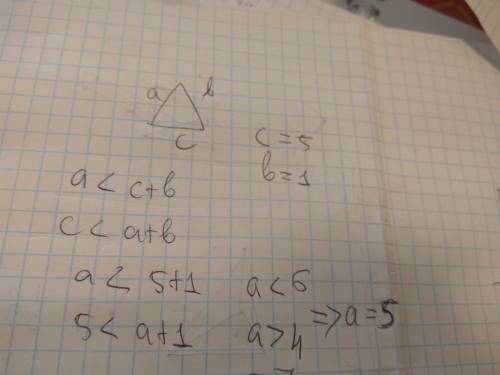 a b
c
c = 5
b = 1
a < c+b
c < a+b
a < 5+1 a < 6
5 < a+1 a > 4 => a = 5